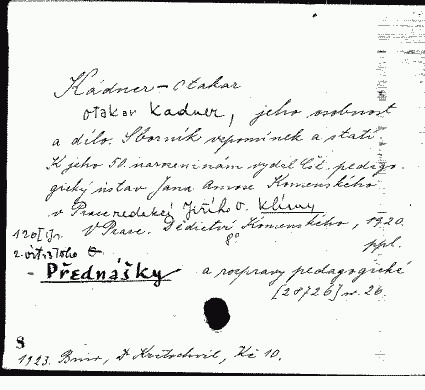 Kádner – Otakar
Otakar Kadner, jeho osobnost
a dílo. Sborník vzpomínek a statí.
K jeho 50. narozeninám vydal Čsl. pedago-
gický ústav Jana Amose Komenského
v Praze redakcí Jiřího V. Klímy
V Praze. Dědictví Komenského, 1920.
8° ppl.
- Přednášky a rozpravy pedagogické
[28726] sv. 26.
8
1923. Brno, Kč 10.